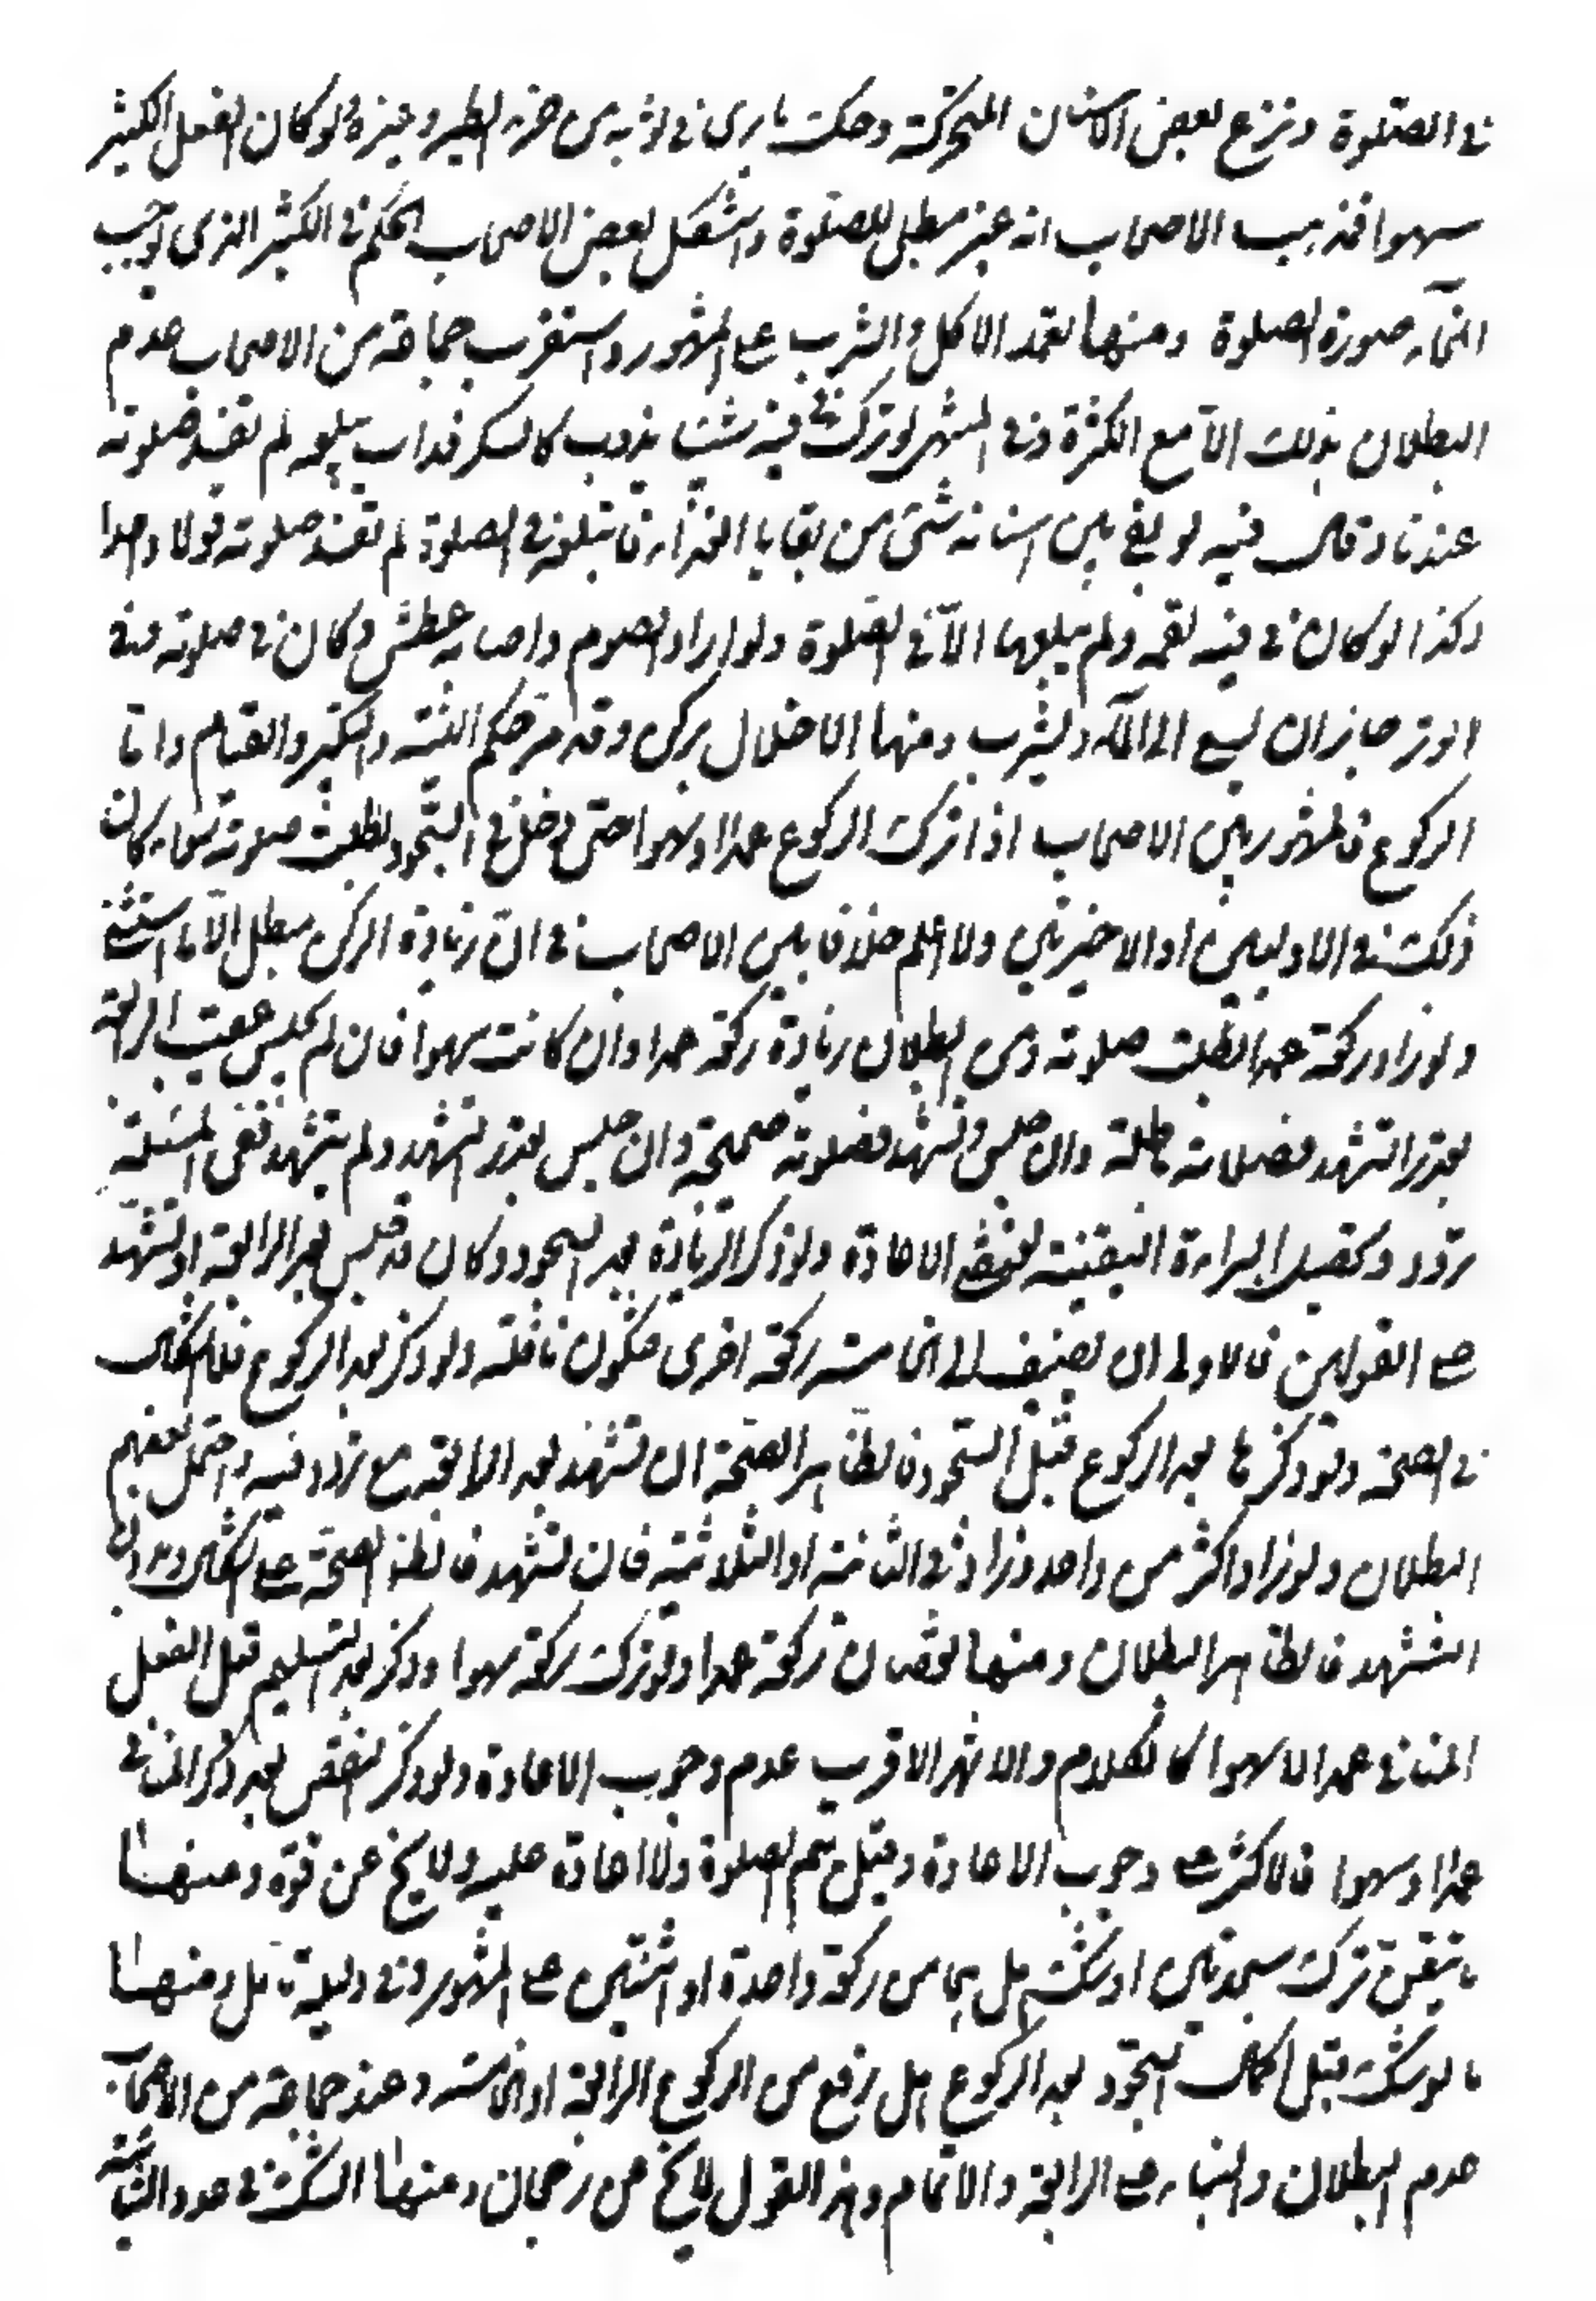 في الصلوة ونزع بعض الاسنان المتحركة وحك ما يرى في ثوبه من خرء الطير وغيره ولو كان الفعل الكثير
سهوا فمذهب الاصحاب انه غير مبطل للصلوة واستشكل بعض الاصحاب الحكم في الكثير الذي يوجب
انمحاء صورة الصلوة ومنها تعمد الاكل والشرب على المشهور واستقرب جماعة من الاصحاب عدم
البطلان بذلك الا مع الكثرة وفي المنتهى لو ترك في فيه شيئا يذوب كالسكر فذاب يبلعه لم تفسد صلوته
عندنا وقال فيه لو بقي بين اسنانه شئ من بقايا الغذاء فابتلعه في الصلوة لم تفسد صلوته قولا واحدا
وكذا لو كان في فيه لقمة ولم يبلعها الا في الصلوة ولو اراد الصوم واصابه عطش وكان في صلوته في
الوتر جاز ان يسعى الى الماء وليشرب ومنها الاخلال بركن وقد مر حكم النية والتكبير والقيام واما
الركوع فالمشهور بين الاصحاب اذا ترك الركوع عمدا او سهوا حتى دخل في السجود بطلت صلوته سواء كان
ذلك في الاوليين او الاخيرتين ولا اعلم خلافا بين الاصحاب في ان زيادة الركن مبطل الا ما استثني
ولو زاد ركعة عمدا بطلت صلاته ومن البطلان زيادة ركعة عمدا وان كانت سهوا فان لم يجلس عقيب الرابعة
بقدر التشهد فصلاته باطلة وان جلس وتشهد فصلوته صحيحة وان جلس بقدر التشهد ولم يتشهد ففي المسئلة
تردد وتحصيل البراءة اليقينية يقتضي الاعادة ولو ذكر الزيادة بعد السجود وكان قد جلس بعد الرابعة او تشهد
على القولين فالاولى ان يضيف الى الخامسة ركعة اخرى فتكون نافلة ولو ذكر قبل الركوع فلا اشكال
في الصحة ولو ذكرها بعد الركوع قبل السجود فالظاهر الصحة ان تشهد بعد الرابعة مع تردد فيه واحتمل بعضهم
البطلان ولو زاد اكثر من واحد وزاد في الثنائية او الثلاثية فان تشهد فالظاهر الصحة على اشكال وبدون
التشهد فالظاهر البطلان ومنها نقصان ركعة عمدا ولو ترك ركعة سهوا وذكر بعد التسليم قبل الفعل
المنافي عمدا لا سهوا كالكلام والاشهر الاقرب عدم وجوب الاعادة ولو ذكر النقص بعد ذكر المنافي
عمدا وسهوا فالاكثر على وجوب الاعادة وقيل يتم الصلوة ولا اعادة عليه ولا يخ عن قوة ومنها
ما تيقن ترك سجدتين او شك هل هما من ركعة واحدة او اثنتين على المشهور وفي دليله تامل ومنها
ما لو شك قبل اكمال السجود بعد الركوع هل رفع من الركوع الرابعة او الخامسة وعند جماعة من الاصحاب
عدم البطلان والبناء على الرابعة والاتمام وهذا القول لا يخ من رجحان ومنها الشك في عدد الثنائية